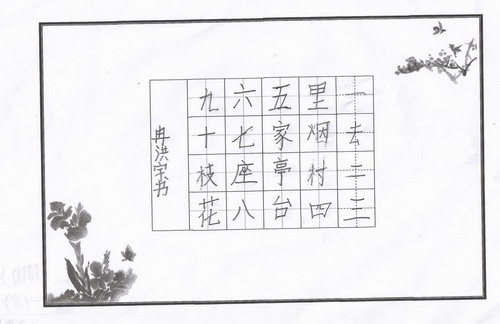 一去二三
里烟村四
五家亭台
六七座八
九十枝花
冉洪宇书